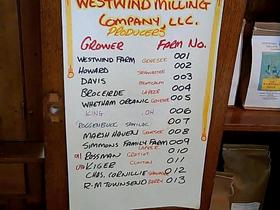 WESTWIND MILLING
COMPANY, LLC.
PRODUCERS
GROWER FARM NO.
WESTWIND FARM GENESEE 001
HOWARD SHIAWASSEE 002
DAVIS MONTCALM 003
BROCERDE LAPEER 004
WHETHAM ORGANIC GENESEE 005
KING , OH 006
ROGGENBUCK SANILAC 007
MARSH HAVEN GENESEE 008
SIMMONS FAMILY FARM 009
LAPEER
ROSSMAN GRATIOT 010
KIGER CLINTON 011
CHAS. CORNILLIE 012
R.M TOWNSEND 013